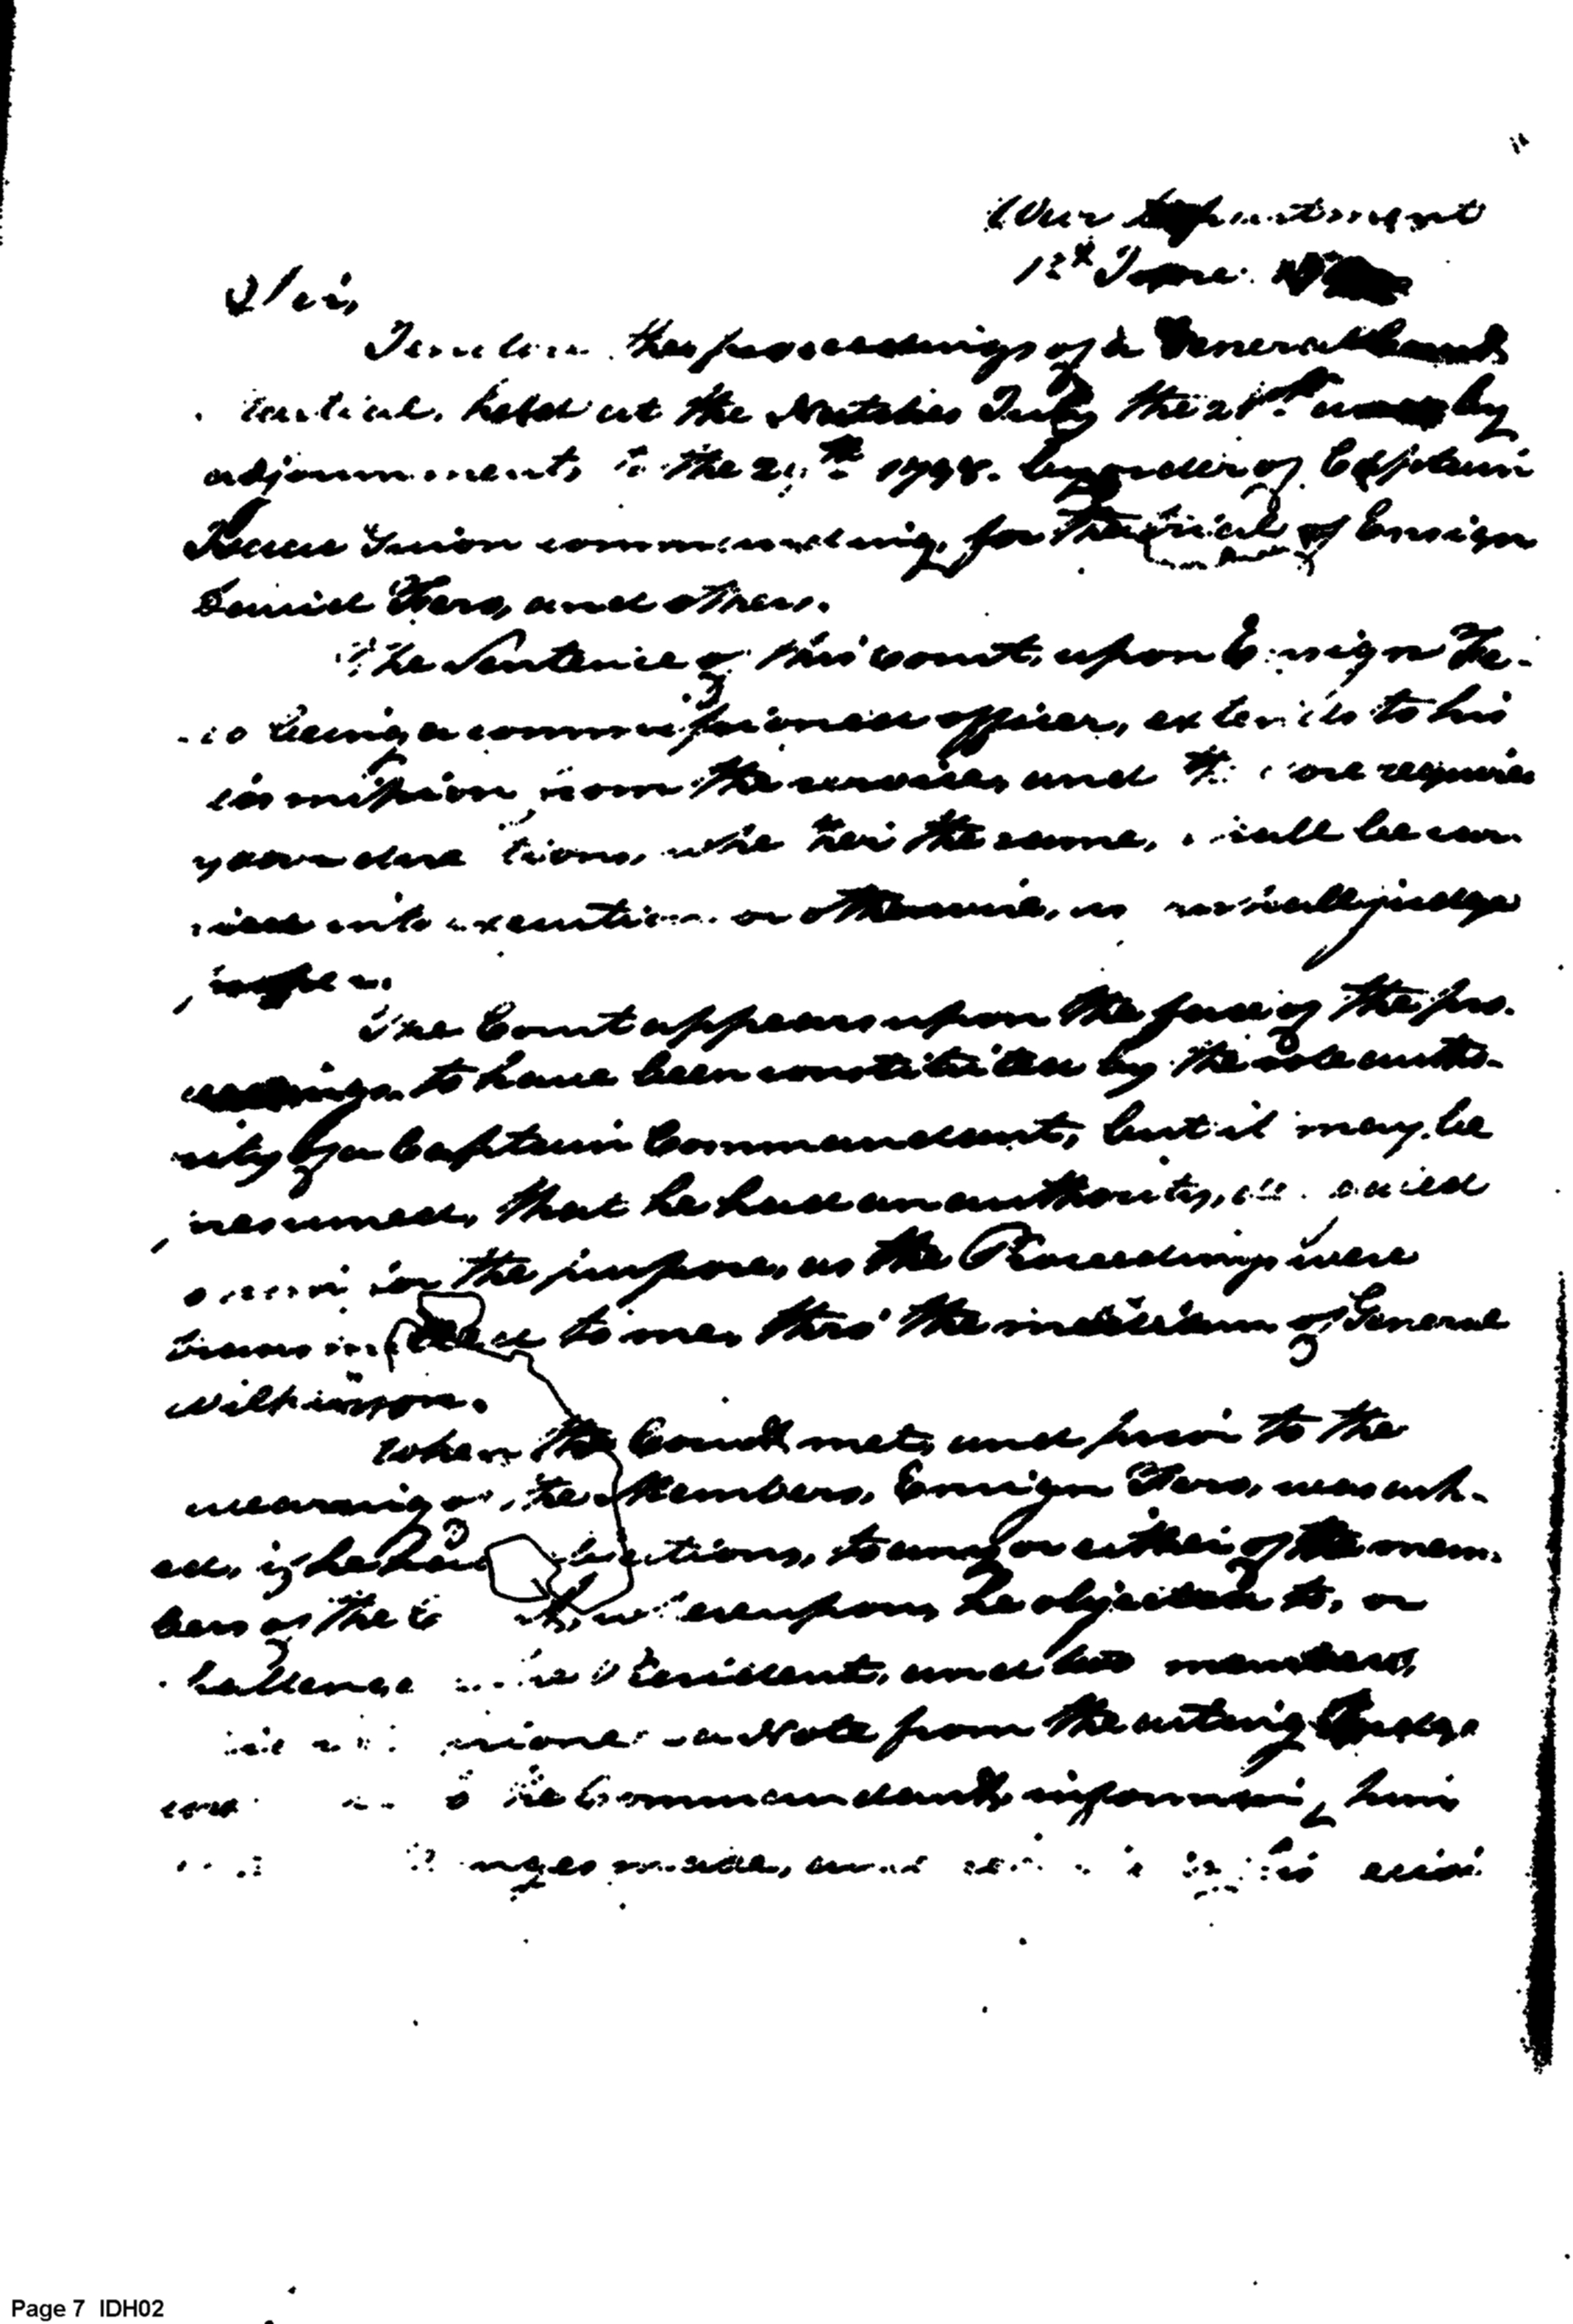 War Department
12th June.
Sir,
I enclose the proceedings of a General Court
Martial, held at the Natches July the 21st and by
adjournments to the 24th 1798. by order of Captain
Isaac Guion commanding, for the trial of Ensign
David Fero, and others.
The Sentence of this Court, upon Ensign Fe-
ro being a commissioned officer, extends to his
dismission from the service, and therefore requires
your directions, whether the same, shall be car
ried into execution or otherwise, as you shall judge
proper.
The Court appears upon the face of the pro-
ceedings to have been constituted by the sole autho-
rity of a Captain Commandant, but it may be
presumed, that he had an authority,
for the purpose, as the Proceedings were
transmitted to me, thro' the medium of General
Wilkinson.
When the Court met, and prior to the
swearing of the Members, Ensign Fero, was ask-
ed, if he had objections, to any or either of the mem-
bers of the Court, whereupon, he objected to, or
challenged the President, and two members,
a Note from the acting Judge
to the Commandant, informing him
made, and